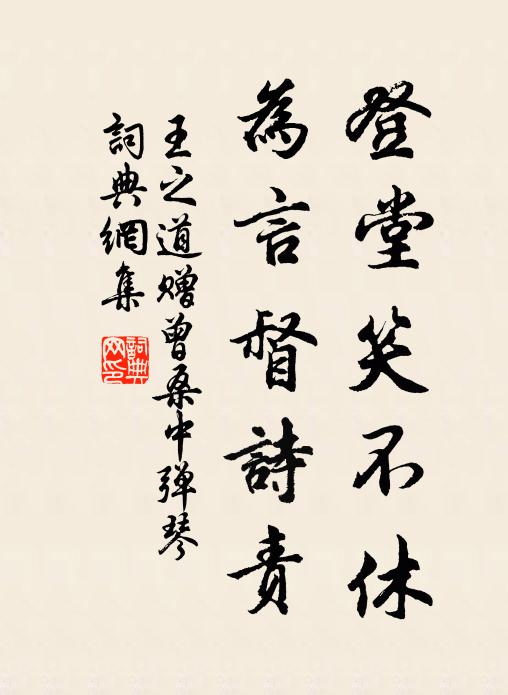 登堂笑不休
為言督詩責
王之道赠曾桑中弹琴
詞典網集
詞典网印